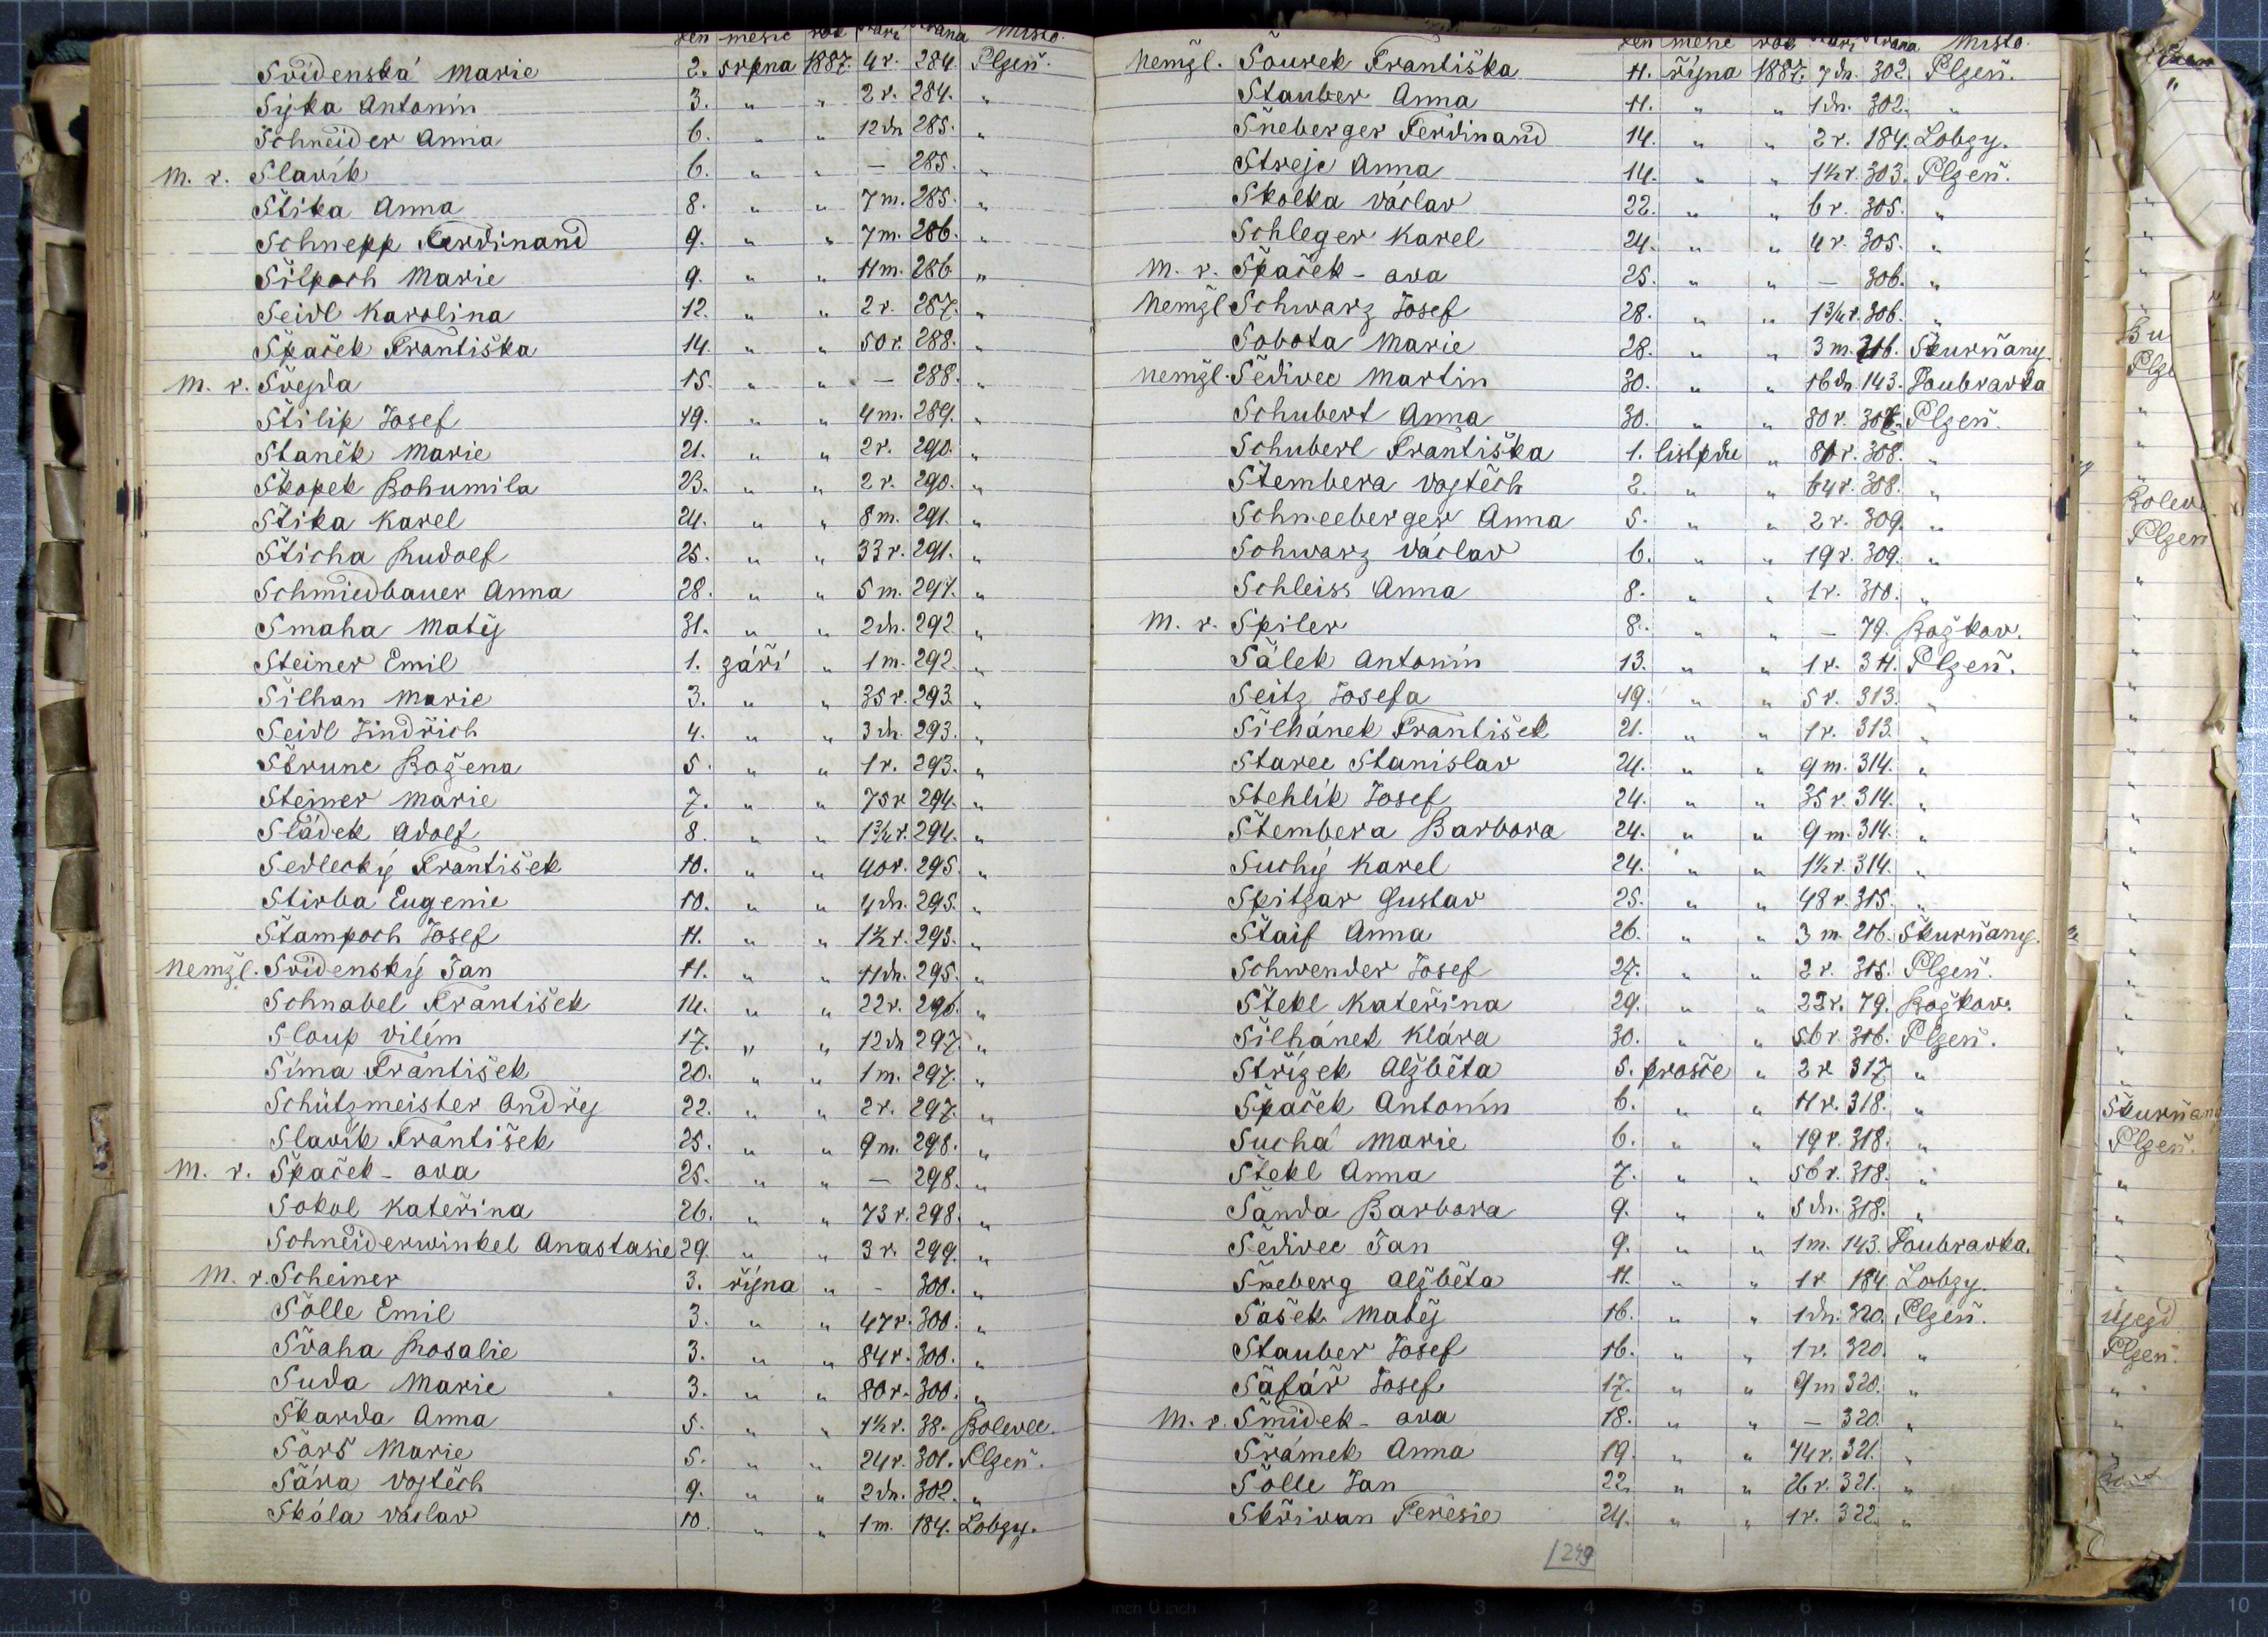 den měsíc rok stáří strana Místo.
Svídenská Marie 2. srpna 1887. 4 r. 284. Plzeň.
Syka Antonín 3. " " 2 r. 284. "
Schneider Anna 6. " " 12 dn 285. "
M. r. Slavík 6. " " — 285. "
Štika Anna 8. " " 7 m. 285. "
Schnepp Ferdinand 9. " " 7 m. 286. "
Šilpoch Marie 9. " " 11 m. 286 "
Seidl Karolina 12. " " 2 r. 287. "
Špaček Frantiśka 14. " " 50 r. 288. "
M. r. Švejda 15. " " — 288. "
Štilip Josef 19. " " 4 m. 289. "
Staněk Marie 21. " " 2 r. 290. "
Skopek Bohumila 23. " " 2 r. 290. "
Štika Karel 24. " " 8 m. 291. "
Šticha Rudolf 25. " " 33 r. 291. "
Schmiedbauer Anna 28. " " 5 m. 291. "
Smaha Matěj 31. " " 2 dn. 292 "
Steiner Emil 1. září " 1 m. 292. "
Šilhan Marie 3. " " 35 r. 293. "
Seidl Jindřich 4. " " 3 dn. 293. "
Štrunc Božena 5. " " 1 r. 293. "
Steiner Marie 7. " " 75 r 294. "
Sládek Adolf 8. " " 1 3/4 r. 294. "
Sedlecký František 10. " " 40 r. 295. "
Stirba Eugenie 10. " " 4 dn. 295. "
Štampach Josef 11. " " 1½ r. 295. "
Nemzl. Svídenský Jan 11. " " 11 dn. 295. "
Schnabel František 14. " " 22 r. 296. "
Sloup Vilém 17. " " 12 dn 297. "
Šíma František 20. " " 1 m. 297. "
Schützmeister Ondřej 22. " " 2 r. 297. "
Slavík František 25. " " 9 m. 298. "
M. r. Špaček - ova 25. " " — 298. "
Sokol Kateřina 26. " " 73 r. 298. "
Schneiderwinkel Anastasie 29. " " 3 r. 299. "
M. r. Scheiner 3. října " - 300. "
Sölle Emil 3. " " 47 r. 300. "
Švaha Rosalie 3. " " 84 r. 300. "
Suda Marie 3. " " 80 r. 300. "
Škarda Anna 5. " " 1½ r. 38. Bolevec.
Sörs Marie 5. " " 24 r. 301. Plzeň.
Šára Vojtěch 9. " " 2 dn. 302. "
Skála Václav 10. " " 1 m. 184. Lobzy.
den měsíc rok stáří strana Místo.
Nemzl. Šourek Františka 11. října 1887. 7 dn. 302. Plzeň.
Stauber Anna 11. " " 1 dn. 302. "
Šneberger Ferdinand 14. " " 2 r. 184. Lobzy.
Strejc Anna 14. " " 1½ r. 303. Plzeň.
Skolka Václav 22. " " 6 r. 305. "
Schleger Karel 24. " " 4 r. 305. "
M. r. Špaček - ova 25. " " — 306. "
Nemzl Schwarz Josef 28. " " 1 3/4 r. 306. "
Sobota Marie 28. " " 3 m. 216. Škurňany.
Nemzl. Šedivec Martin 30. " " 16 dn. 143. Doubravka
Schubert Anna 30. " " 80 r. 307. Plzeň.
Schubert Františka 1. listpdu " 81 r. 308. "
Štembera Vojtěch 2. " " 64 r. 308. "
Schneeberger Anna 5. " " 2 r. 309. "
Schwarz Václav 6. " " 19 r. 309. "
Schleiss Anna 8. " " 1 r. 310. "
M. r. Spiler 8. " " — 79. Božkov.
Šálek Antonín 13. " " 1 r. 311. Plzeň.
Seitz Josefa 19. " " 5 r. 313. "
Šilhánek František 21. " " 1 r. 313. "
Starec Stanislav 24. " " 9 m. 314. "
Stehlík Josef 24. " " 35 r. 314. "
Štembera Barbora 24. " " 9 m. 314. "
Suchý Karel 24. " " 1½ r. 314. "
Spitzar Gustav 25. " " 48 r. 315. "
Štaif Anna 26. " " 3 m. 216. Škurňany.
Schwender Josef 27. " " 2 r. 315. Plzeň.
Štekl Kateřina 29. " " 22 r. 79. Božkov.
Šilhánek Klára 30. " " 56 r. 316. Plzeň.
Střízek Alžběta 5. prosce " 2 r 317 "
Špaček Antonín 6. " " 11 r. 318. "
Suchá Marie 6. " " 19 r. 318. "
Štekl Anna 7. " " 56 r. 318. "
Šanda Barbora 9. " " 5 dn. 318. "
Šedivec Jan 9. " " 1 m. 143. Doubravka.
Šneberg Alžběta 11. " " 1 r 184. Lobzy.
Šašek Matěj 16. " " 1 dn. 320. Plzeň.
Stauber Josef 16. " " 1 r. 320. "
Šafář Josef 17. " " 9 m 320. "
M. r. Šmídek - ova 18. " " — 320. "
Šrámek Anna 19. " " 44 r. 321. "
Sölle Jan 22. " " 26 r. 321. "
Skřivan Teresie 24. " " 1 r. 322. "
249
Plzeň
Škurňany
Plzeň.
Újezd
Plzeň.